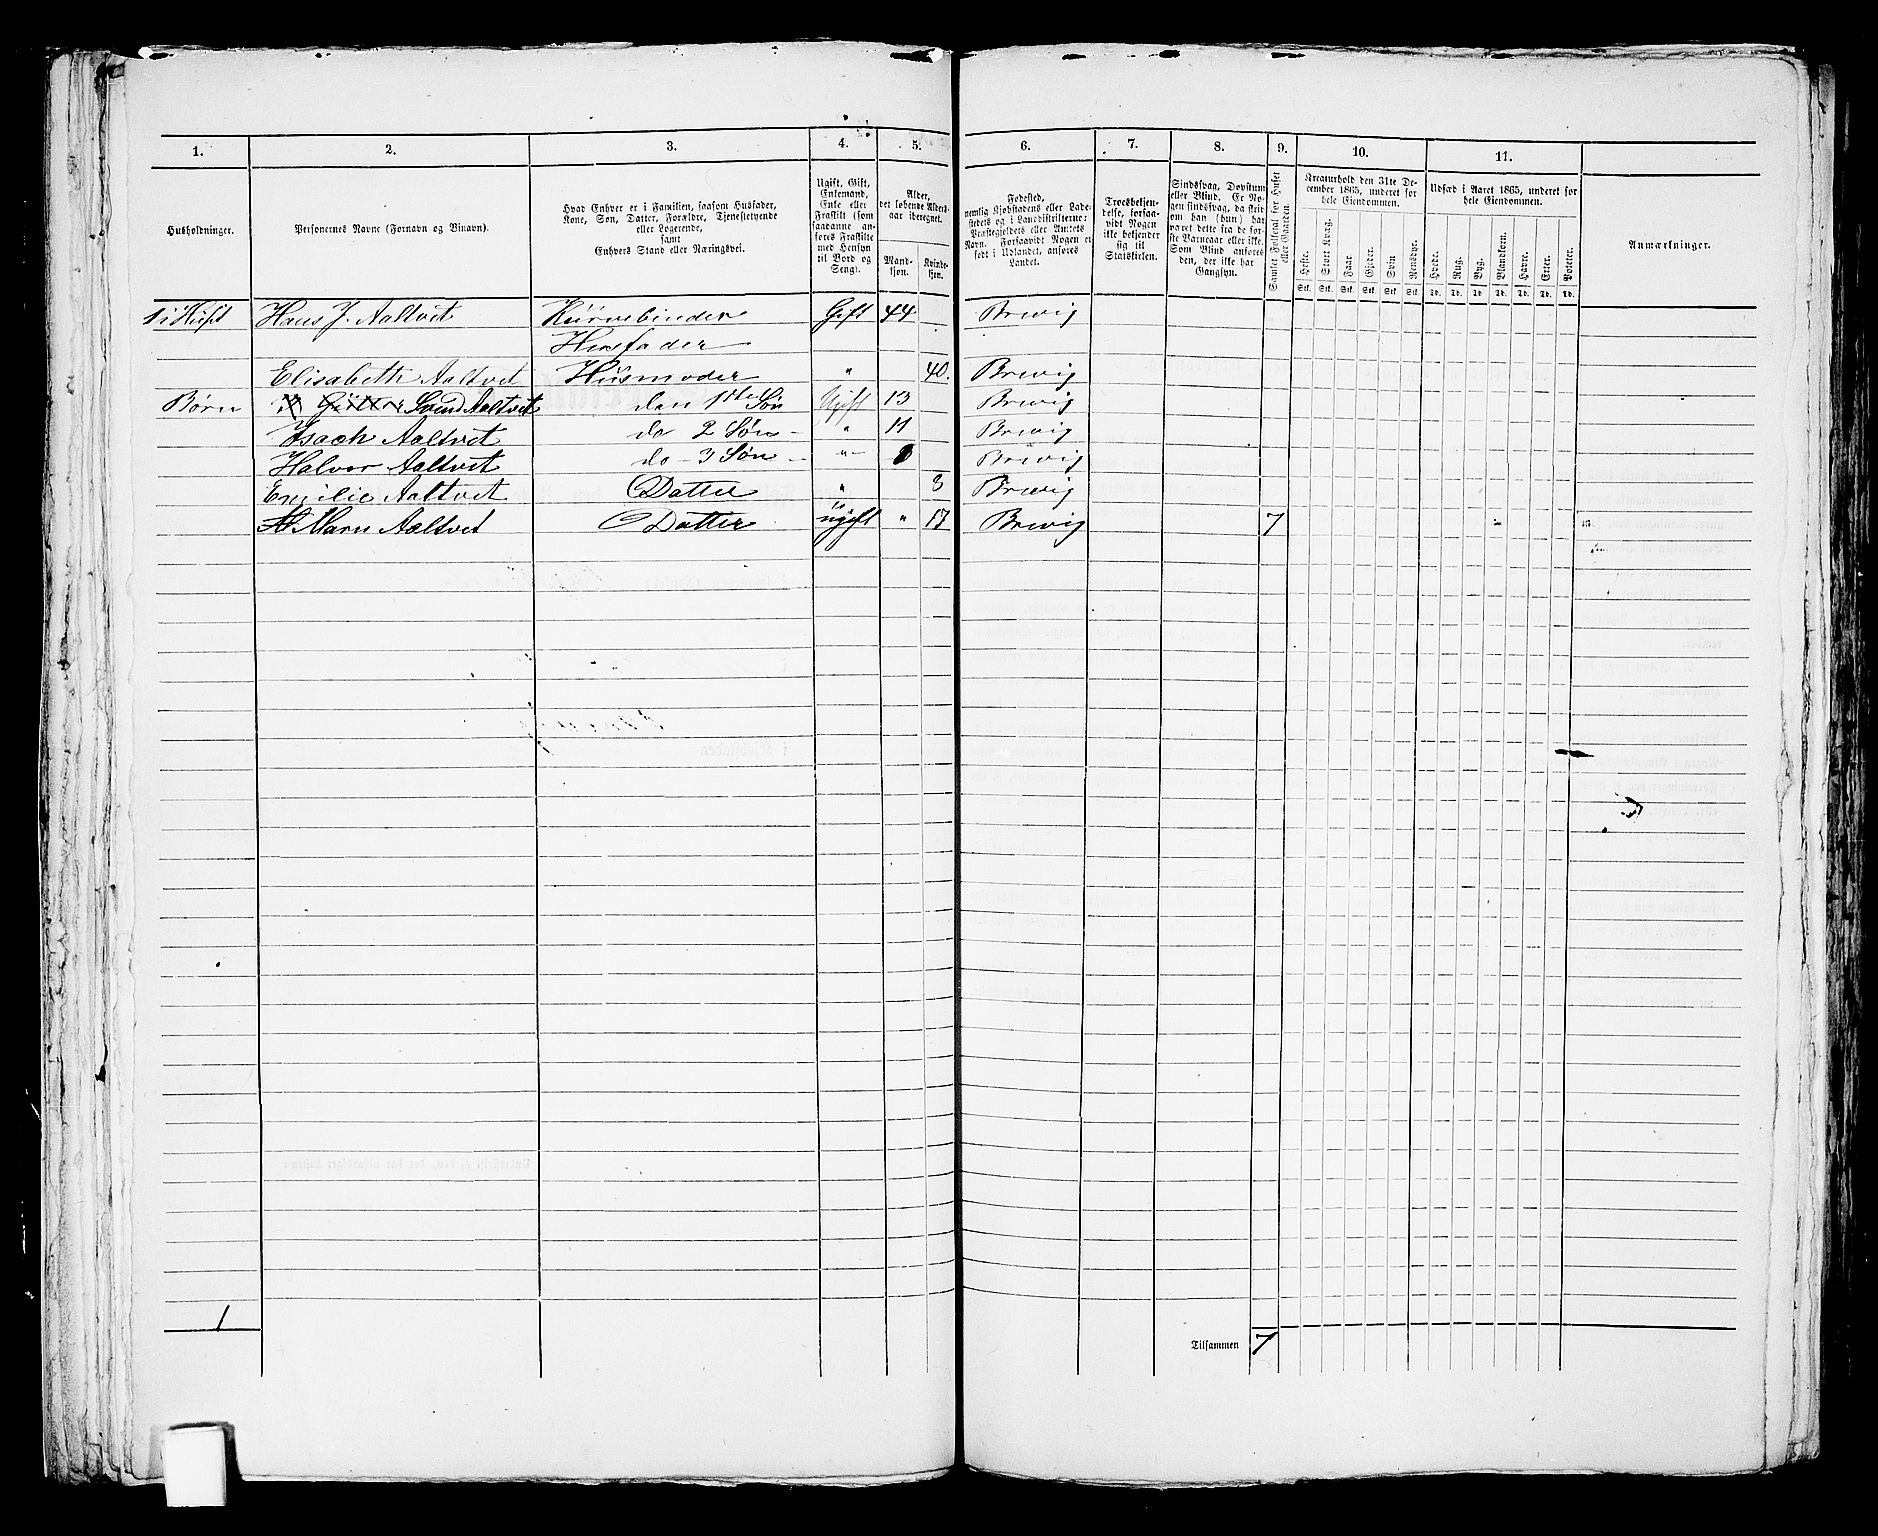 1. 2. 3. 4. 5. 6. 7. 8. 9. 10. 11.
Husholdninger.
Personernes Navne (Fornavn og Binavn).
Hvad Enhver er i Familien, saasom Husfader,
Kone, Søn, Datter, Forældre, Tjenestetyende
eller Logerende,
samt
Enhvers Stand eller Næringsvei.
Ugift, Gift,
Enkemand,
Enke eller
Fraskilt (som
saadanne an-
føres Fraskilte
med Hensyn
til Bord og
Seng).
Alder,
det løbende Alders-
aar iberegnet.
Mand-
kjøn.
Kvinde-
kjøn.
Fødested,
nemlig Kjøbstadens eller Lade-
stedets og i Landdistrikterne:
Præstegjeldets eller Amtets
Navn. Forsaavidt Nogen er
født i Udlandet, anføres
Landet.
Troesbekjen-
delse, forsaa-
vidt Nogen
ikke bekjender
sig til
Statskirken.
Sindssvag, Døvstum
eller Blind. Er No-
gen sindssvag, da skriv
om han (hun) har
været dette fra de før-
ste Barneaar eller ikke.
Som Blind anføres
den, der ikke har
Gangsyn.
Samlet Folketal for Huset
eller Gaarden.
Kreaturhold den 31te De-
cember 1865, underet for
hele Eiendommen.
Heste. Stort Kvæg. Faar. Gjeder. Svin Rensdyr.
Stk. Stk. Stk. Stk. Stk. Stk.
Udsæd i Aaret 1865, underet for
hele Eiendommen.
Hvede. Rug. Byg. Blandkorn. Havre. Erter. Poteter.
Td. Td. Td. Td. Td. Td. Td.
Anmærkninger.
1 i Huset Hans J. Aaltvet Kurvebinder Gift 44 Brevig
Husfader
Elisabeth Aaltvet Husmoder " 40. Brevig
Børn Svend Aaltvet den 1ste Søn Ugift 13 Brevig
Isach Aaltvet do 2 Søn " 11 Brevig
Halvor Aaltvet do 3 Søn " Brevig
Emilie Aaltvet Datter " 3 Brevig
Maren Aaltvet Datter ugift " 17 Brevig 7
1
Tilsammen 7